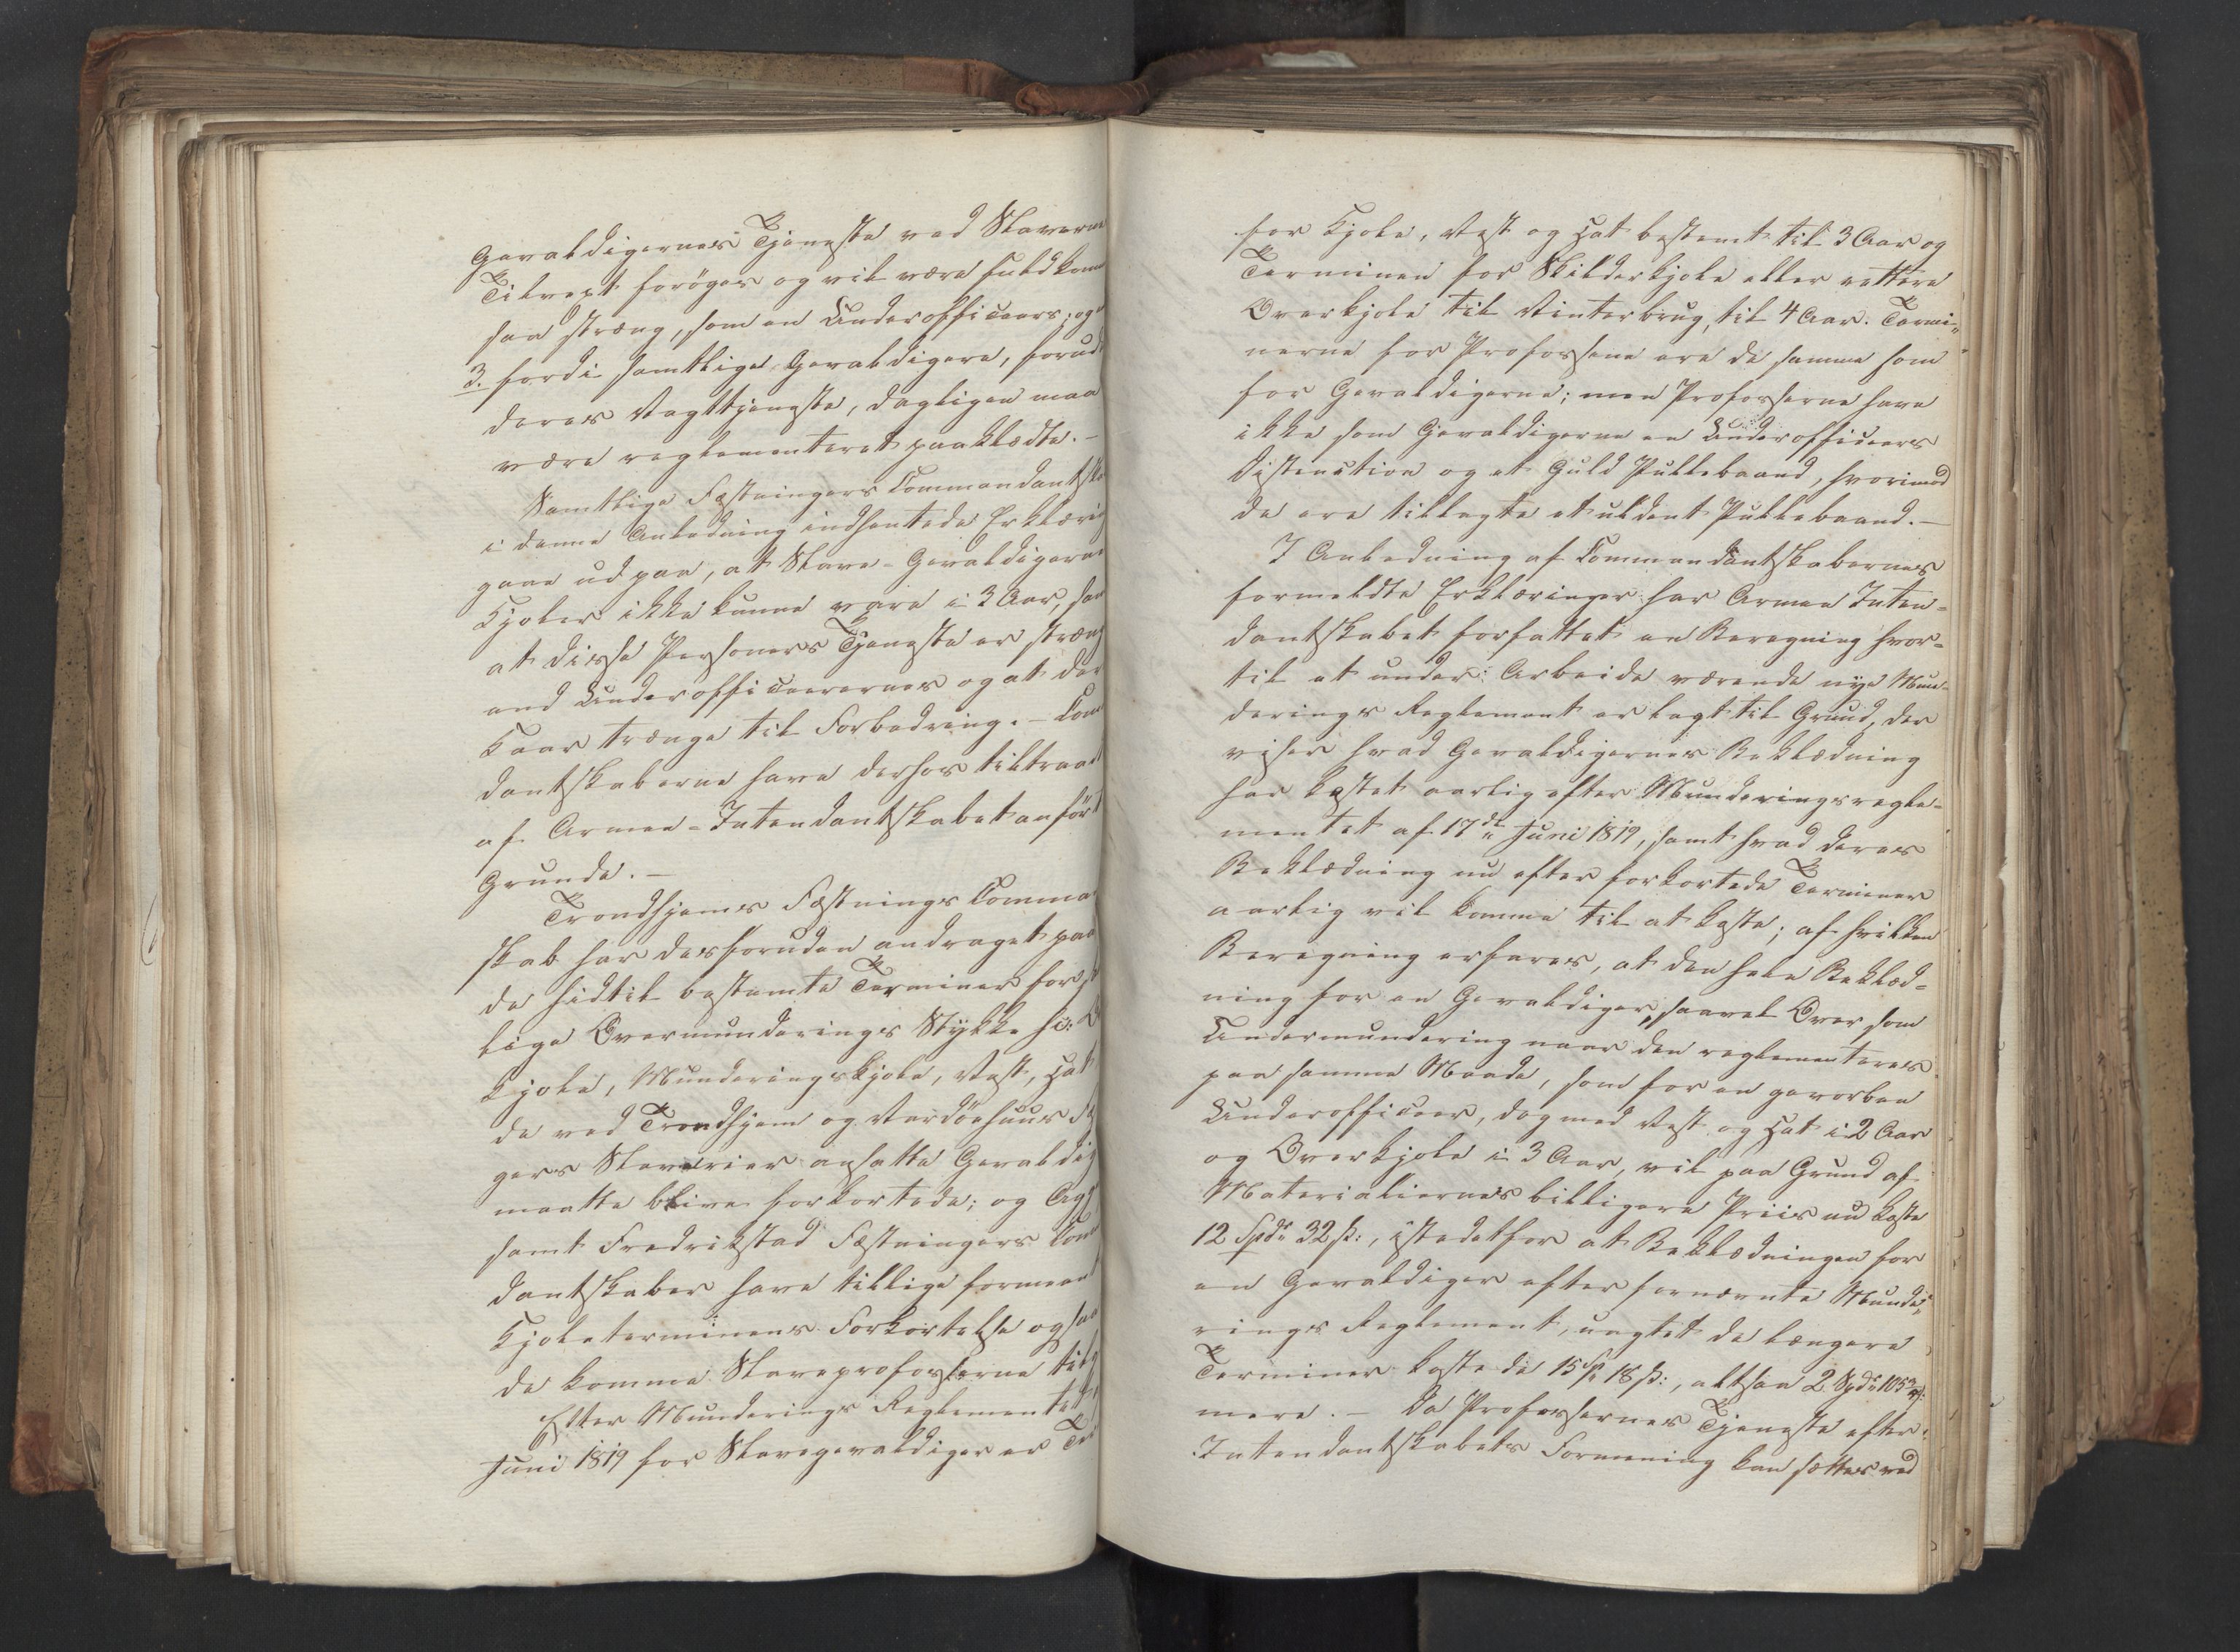 Gevaldigernes Tjeneste ved Slaverne
Tilvext forøges og vil være fuldkom
saa streng, som en Underofficeers; og
3. fordi samtlige Gevaldigere, forud
deres Vagttjeneste, dagligen maa
være reglementeret paaklædte. –
Samtlige Fæstningers Commandantska
i denne Anledning indhentede Erklærin
gaae ud paa, at Slave-Gevaldigerne
Kjoler ikke kunne vare i 3 Aar, sam
at disse Personers Tjeneste er streng
end Underofficeerernes og at der
Kaar trænge til Forbedring. – Com
dantskaberne have derhos tiltraadt
af Armee-Intendantskabet anført
Grunde. –
Trondhjems Fæstnings Comman
skab har desforuden andraget paa
de hidtil bestemte Terminer for
lige Overmunderings Stykke si: O
kjole, Munderingskjole, Vest, Hat
de ved Trondhjem og Vardöehuus Fæ
gers Slaverier ansatte Gevaldig
maatte blive forkortede; og Agg
samt Fredrikstad Fæstningers Com
dantskaber have tillige formeent
Kjoleterminens Forkortelse ogsaa
de komme Slaveprofosserne til
Efter Munderings Reglementet
Juni 1819 for Slavegevaldiger er Te
for Kjole, Vest og Hat bestemt til 3 Aar og
Terminen for Skilderkjole eller rettere
Overkjole til Vinterbrug, til 4 Aar. Termi-
nerne for Profossene ere de samme som
for Gevaldigerne; men Profosserne have
ikke som Gevaldigerne en Underofficeers
Distinction og et Guld Pullebaand, hvorimod
de ere tillagte et uldent Pullebaand. –
I Anledning af Commandantskabernes
formeldte Erklæringer har Armee Inten-
dantskabet forfattet en Beregning hvor-
til et under Arbeide værende nye Mun-
derings Reglement er lagt til Grund, der
viser hvad Gevaldigernes Beklædning
har kostet aarlig efter Munderingsregle-
mentet af 17de Juni 1819, samt hvad deres
Beklædning nu efter forkortede Terminer
aarlig vil komme til at koste; af hvilken
Beregning erfares, at den hele Beklæd-
ning for en Gevaldiger, saavel Over som
Undermundering naar den reglementeres
paa samme Maade, som for en gevorben
Underofficeer, dog med Vest og Hat i 2 Aar
og Overkjole i 3 Aar, vil paa Grund af
Materialiernes billigere Priis nu koste
12 Spdr 32 ß:, istedetfor at Beklædningen for
en Gevaldiger efter fornævnte Munde-
rings Reglement, uagtet de længere
Terminer kostede 15 Sp 18 ß:, altsaa 2 Spdr 105 ß:
mere. – Da Profossernes Tjeneste efter
Intendantskabets Formening kan sættes ved